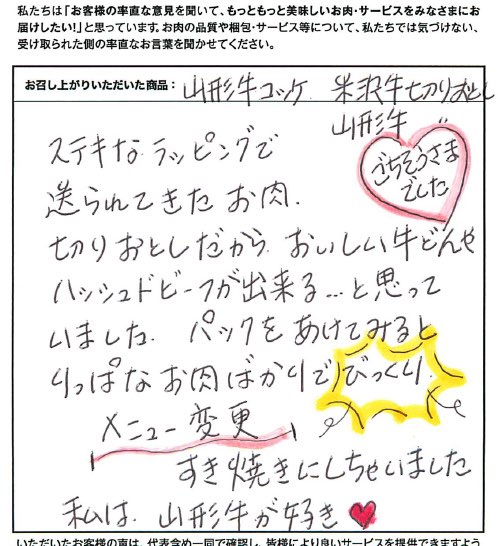 私たちは「お客様の率直な意見を聞いて、もっともっと美味しいお肉・サービスをみなさまにお
届けしたい!」と思っています。お肉の品質や梱包・サービス等について、私たちでは気づけない、
受け取られた側の率直なお言葉を聞かせてください。
お召し上がりいただいた商品: 山形牛コッケ. 米沢牛切りおとし
山形牛 〃
ごちそうさま
でした
ステキな ラッピングで
送られてきた お肉.
切りおとしだから おいしい牛どんや
ハッシュドビーフが出来る…と思って
いました. パックをあけてみると
りっぱな お肉ばかりで びっくり.
メニュー変更
すき焼きにしちゃいました
私は. 山形牛が好き
いただいたお客様の声は、代表含め一同で確認し、皆様により良いサービスを提供できますよう